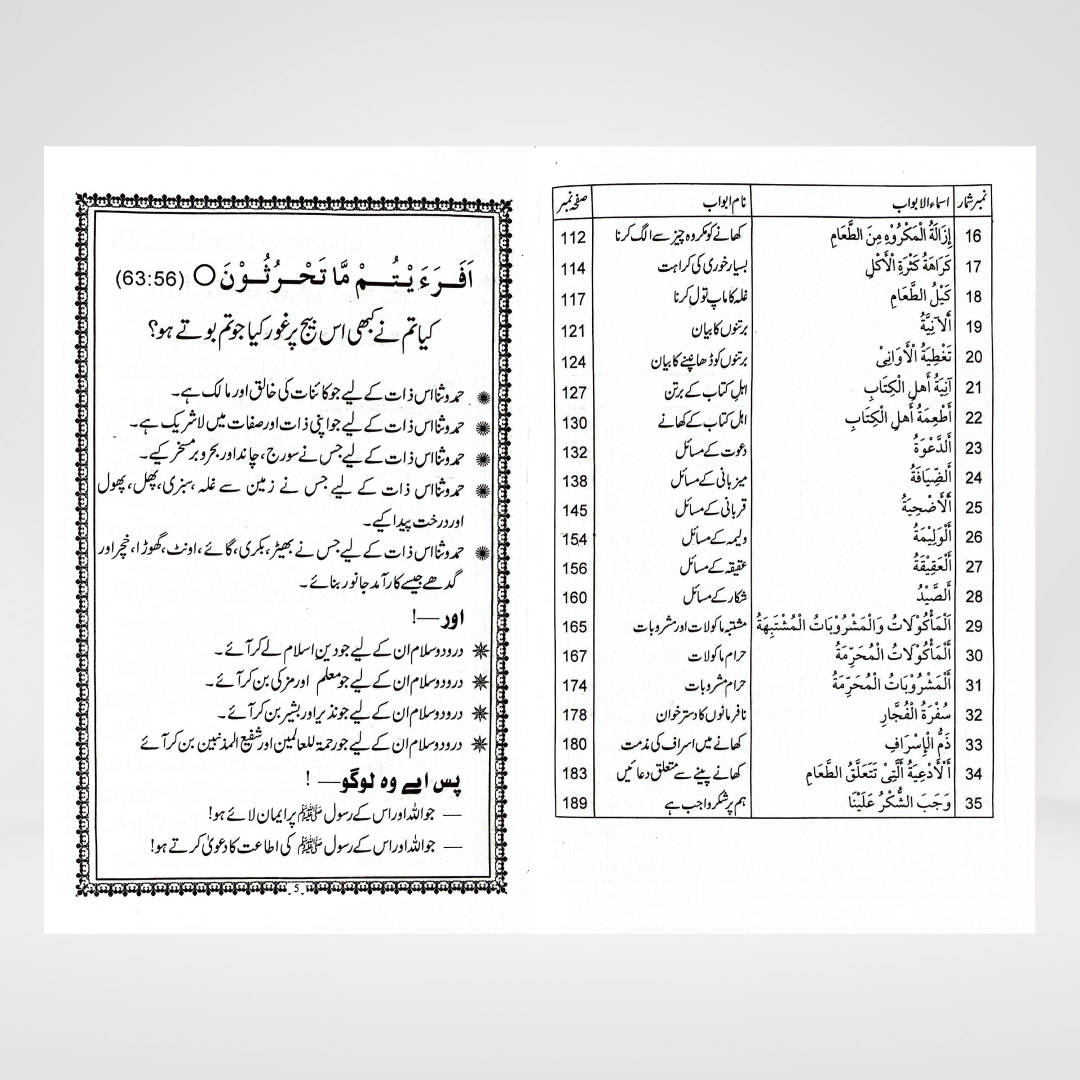 نمبر شمار اسماء الابواب نام ابواب صفحہ نمبر
16 إِزَالَةُ الْمَكْرُوْهِ مِنَ الطَّعَامِ کھانے کو مکروہ چیز سے الگ کرنا 112
17 كَرَاهَةُ كَثْرَةِ الْأَكْلِ بسیار خوری کی کراہت 114
18 كَيْلُ الطَّعَامِ غلہ کا ماپ تول کرنا 117
19 أَلْآنِيَّةُ برتنوں کا بیان 121
20 تَغْطِيَةُ الْأَوَانِيْ برتنوں کو ڈھاپنے کا بیان 124
21 آنِيَةُ أَهْلِ الْكِتَابِ اہلِ کتاب کے برتن 127
22 أَطْعِمَةُ أَهْلِ الْكِتَابِ اہل کتاب کے کھانے 130
23 أَلدَّعْوَةُ دعوت کے مسائل 132
24 أَلضِّيَافَةُ میزبانی کے مسائل 138
25 أَلْأَضْحِيَةُ قربانی کے مسائل 145
26 أَلْوَلِيْمَةُ ولیمہ کے مسائل 154
27 أَلْعَقِيْقَةُ عقیقہ کے مسائل 156
28 أَلصَّيْدُ شکار کے مسائل 160
29 أَلْمَأْكُوْلَاتُ وَالْمَشْرُوْبَاتُ الْمُشْتَبِهَةُ مشتبہ ماکولات اور مشروبات 165
30 أَلْمَأْكُوْلَاتُ الْمُحَرِّمَةُ حرام ماکولات 167
31 أَلْمَشْرُوْبَاتُ الْمُحَرِّمَةُ حرام مشروبات 174
32 سُفْرَةُ الْفُجَّارِ نافرمانوں کا دسترخوان 178
33 ذَمُّ الْإِسْرَافِ کھانے میں اسراف کی مذمت 180
34 أَلْأَدْعِيَةُ أَلَّتِيْ تَتَعَلَّقُ الطَّعَامِ کھانے پینے سے متعلق دعائیں 183
35 وَجَبَ الشُّكْرُ عَلَيْنَا ہم پر شکر واجب ہے 189
اَفَرَءَيْتُمْ مَّا تَحْرُثُوْنَ ○ (63:56)
کیا تم نے کبھی اس بیج پر غور کیا جو تم بوتے ہو؟
حمد وثنا اس ذات کے لیے جو کائنات کی خالق اور مالک ہے۔
حمد وثنا اس ذات کے لیے جو اپنی ذات اور صفات میں لاشریک ہے۔
حمد وثنا اس ذات کے لیے جس نے سورج، چاند اور بحر و بر مسخر کیے۔
حمد وثنا اس ذات کے لیے جس نے زمین سے غلہ، سبزی، پھل، پھول
اور درخت پیدا کیے۔
حمد وثنا اس ذات کے لیے جس نے بھیڑ، بکری، گائے، اونٹ، گھوڑا، خچر اور
گدھے جیسے کارآمد جانور بنائے۔
اور—!
درود وسلام ان کے لیے جو دینِ اسلام لے کر آئے۔
درود وسلام ان کے لیے جو معلم اور مزکی بن کر آئے۔
درود وسلام ان کے لیے جو نذیر اور بشیر بن کر آئے۔
درود وسلام ان کے لیے جو رحمۃ للعالمین اور شفیع المذنبین بن کر آئے
پس اے وہ لوگو— !
— جو اللہ اور اس کے رسول ﷺ پر ایمان لائے ہو!
— جو اللہ اور اس کے رسول ﷺ کی اطاعت کا دعویٰ کرتے ہو!
-5-